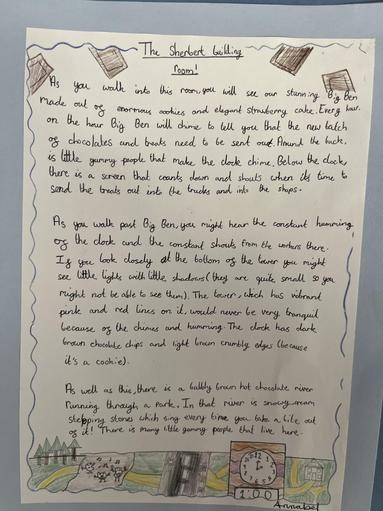 The Sherbert building
room!
As you walk into this room, you will see our stunning Big Ben
made out of enormous cookies and elegant strawberry cake. Every hour,
on the hour Big Ben will chime to tell you that the new batch
of chocolates and treats need to be sent out. Around the back,
is little gummy people that make the clock chime. Below the clock,
there is a screen that counts down and shouts when its time to
send the treats out into the trucks and into the shops.
As you walk past Big Ben, you might hear the constant humming
of the clock and the constant shouts from the workers there.
If you look closely at the bottom of the tower you might
see little lights with little shadows (they are quite small so you
might not be able to see them). The tower, which has vibrant
pink and red lines on it, would never be very tranquil
because of the chimes and humming. The clock has dark
brown chocolate chips and light brown crumbly edges (because
it's a cookie).
As well as this, there is a bubbly brown hot chocolate river
running through a park. In that river is snowy cream
stepping stones which sing every time you take a bite out
of it! There is many little gummy people that live here.
1:00
Annabel